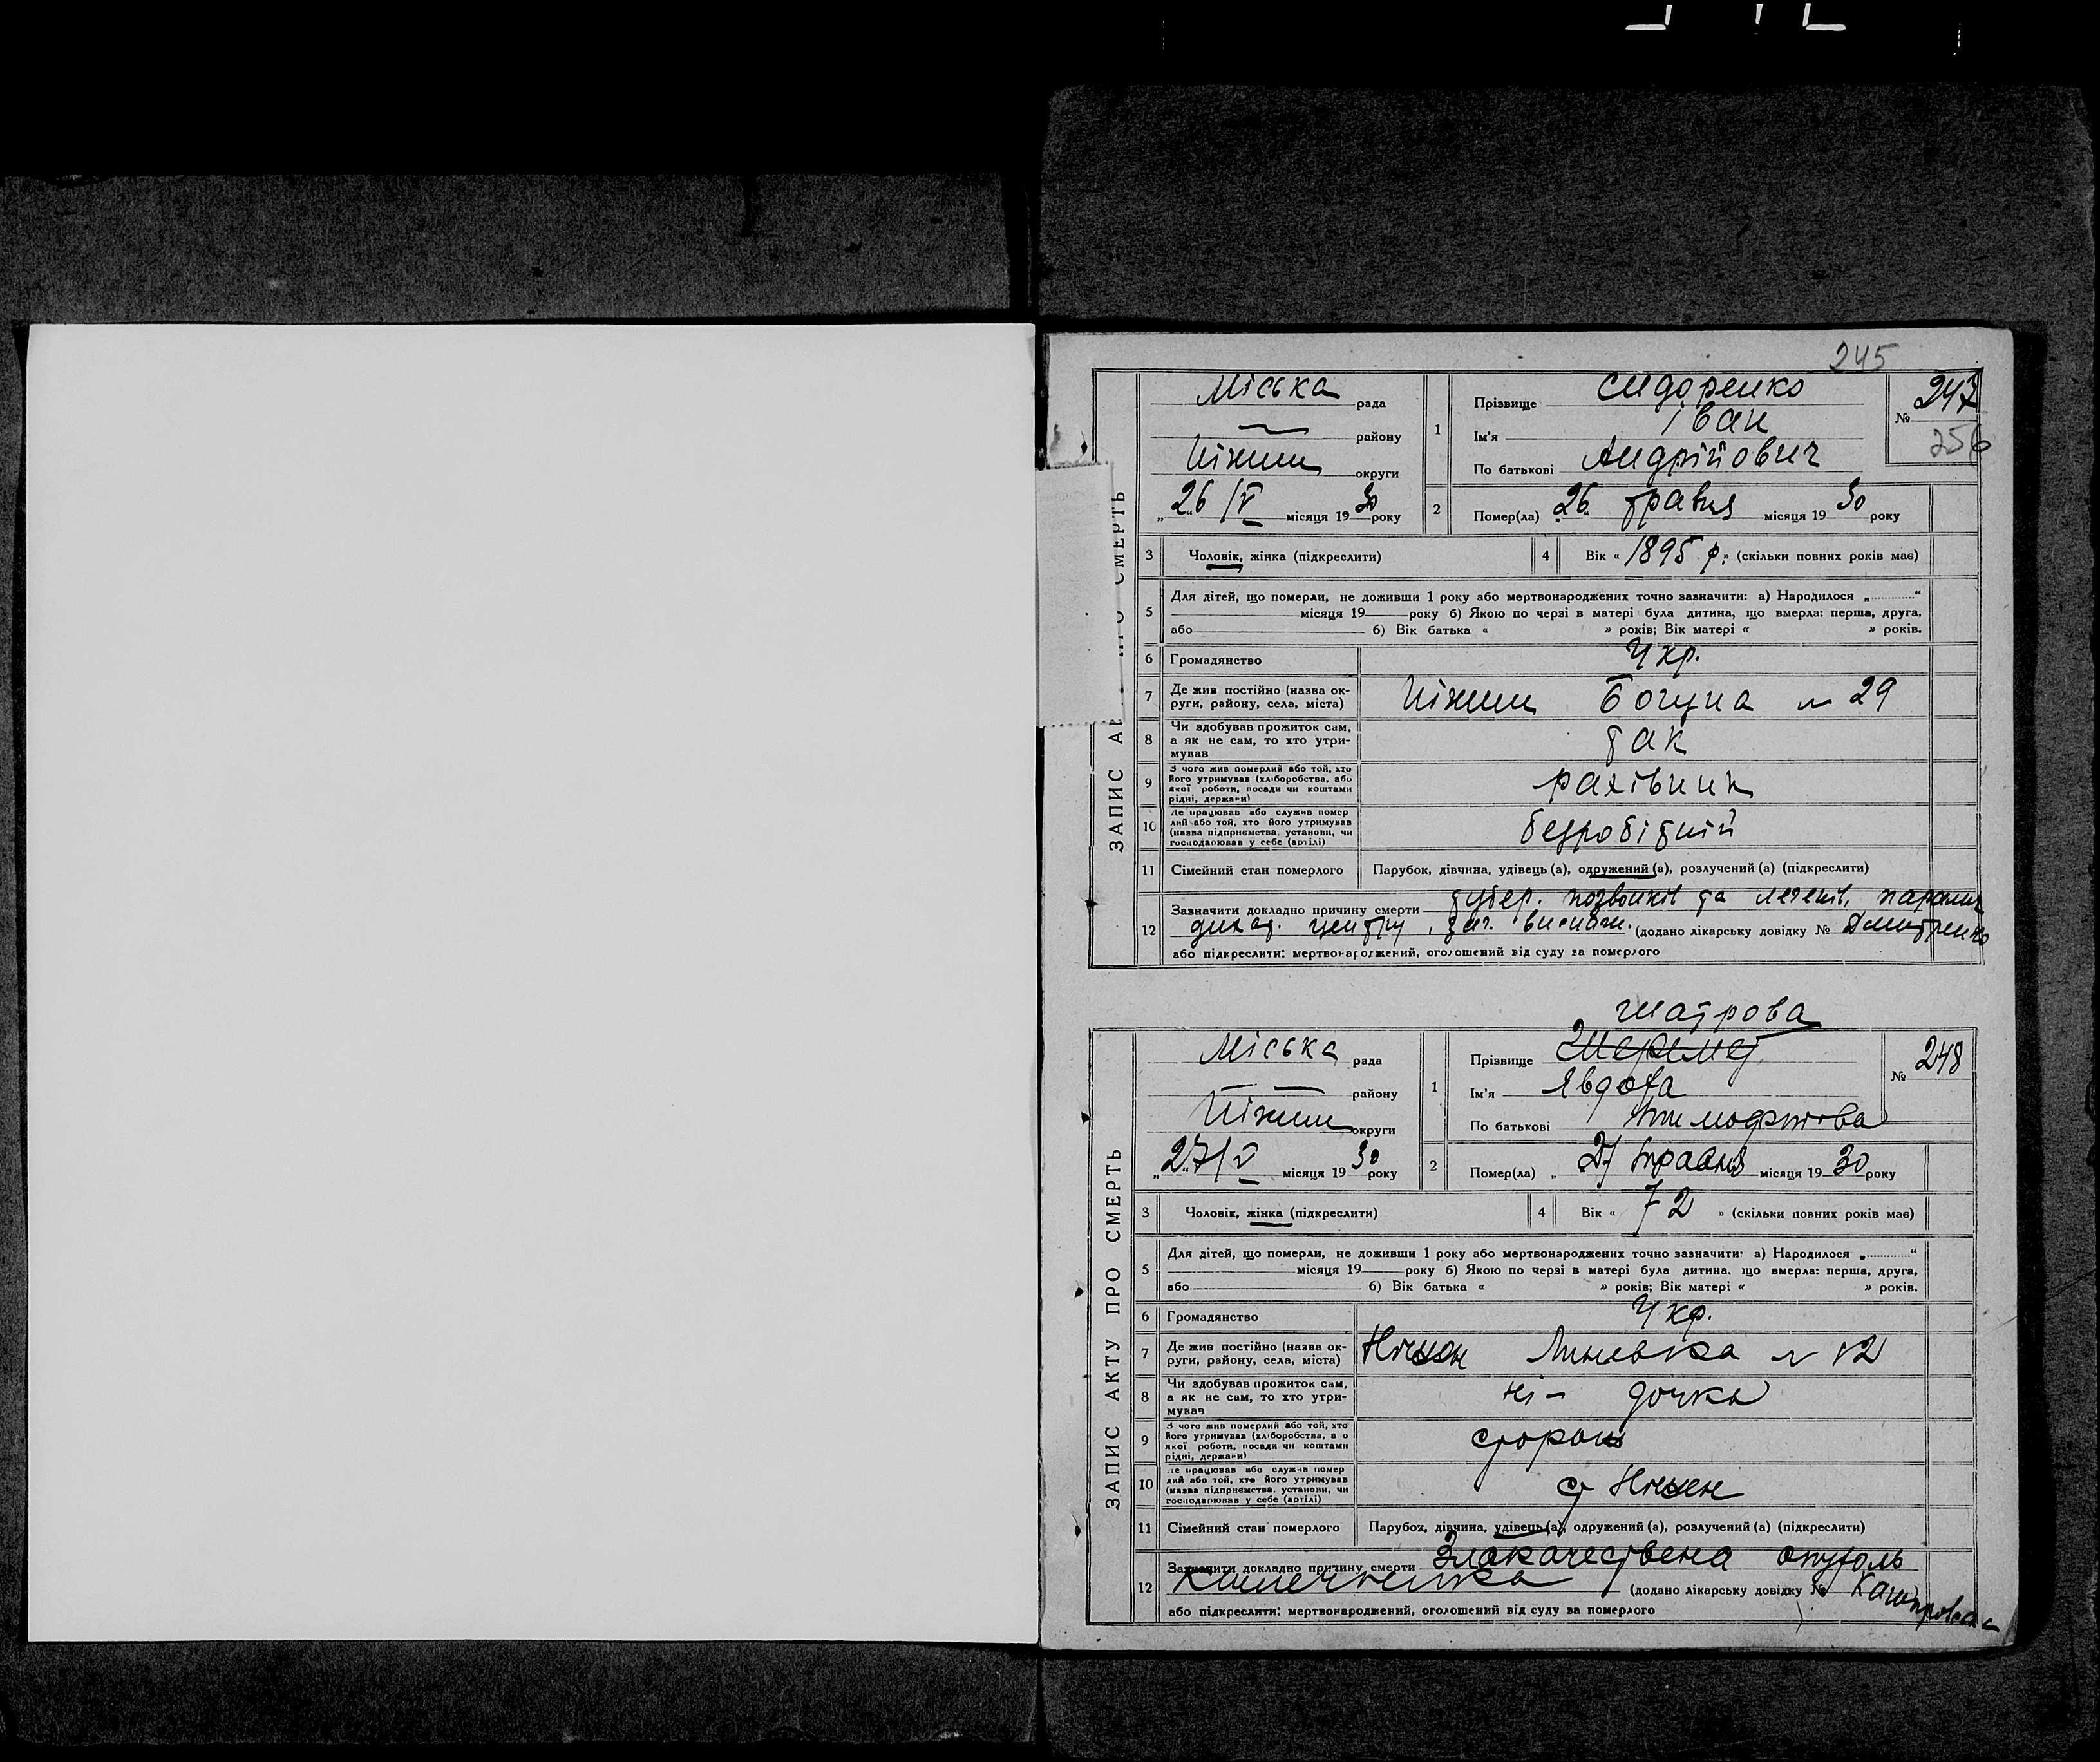 245
ЗАПИС АКТУ ПРО СМЕРТЬ
Міська рада
району
Ніжин округи
„26/V місяця 1930 року
1 Прізвище Сидоренко
Ім'я Іван
По батькові Андрійович
№ 247
256
2 Помер(ла) 26 травня місяця 1930 року
3 Чоловік, жінка (підкреслити)
4 Вік « 1895 р.» (скільки повних років має)
5 Для дітей, що померли, не доживши 1 року або мертвонароджених точно зазначити: а) Народилося „............“
місяця 19 року б) Якою по черзі в матері була дитина, що вмерла: перша, друга,
або б) Вік батька « » років; Вік матері « » років.
6 Громадянство Укр.
7 Де жив постійно (назва ок-
руги, району, села, міста) Ніжин Богуна № 29
8 Чи здобував прожиток сам,
а як не сам, то хто утри-
мував так
9 З чого жив померлий або той, хто
його утримував (хліборобства, або
якої роботи, посади чи коштами
рідні, держави) рахівник
10 Де працював або служив помер
лий або той, хто його утримував
(назва підприємства, установи, чи
господарював у себе (артілі) безробітній
11 Сімейний стан померлого Парубок, дівчина, удівець (а), одружений (а), розлучений (а) (підкреслити)
12 Зазначити докладно причину смерти тубер. позвонків та легенів, параліч
дихат. центру, заг. виснаж. (додано лікарську довідку № Дмитренко
або підкреслити: мертвонароджений, оголошений від суду за померлого
Шатрова
ЗАПИС АКТУ ПРО СМЕРТЬ
Міська рада
району
Ніжин округи
„27/V місяця 1930 року
1 Прізвище Шеремет
Ім'я Явдоха
По батькові Тимофієва
№ 248
2 Помер(ла) „ 27 травня місяця 1930 року
3 Чоловік, жінка (підкреслити)
4 Вік « 72 » (скільки повних років має)
5 Для дітей, що померли, не доживши 1 року або мертвонароджених точно зазначити: а) Народилося „............“
місяця 19 року б) Якою по черзі в матері була дитина, що вмерла: перша, друга,
або б) Вік батька « » років; Вік матері « » років.
6 Громадянство Укр.
7 Де жив постійно (назва ок-
руги, району, села, міста) Ніжен № 12
8 Чи здобував прожиток сам,
а як не сам, то хто утри-
мував ні – дочка
9 З чого жив померлий або той, хто
його утримував (хліборобства, а о
якої роботи, посади чи коштами
рідні, держави) сторож
10 Де працював або служив помер
лий або той, хто його утримував
(назва підприємства, установи, чи
господарював у себе (артілі) ст Ніжен
11 Сімейний стан померлого Парубох, дівчина, удівець (а), одружений (а), розлучений (а) (підкреслити)
12 Зазначити докладно причину смерти Злокачествена опухоль
кишечника (додано лікарську довідку №
або підкреслити: мертвонароджений, оголошений від суду за померлого